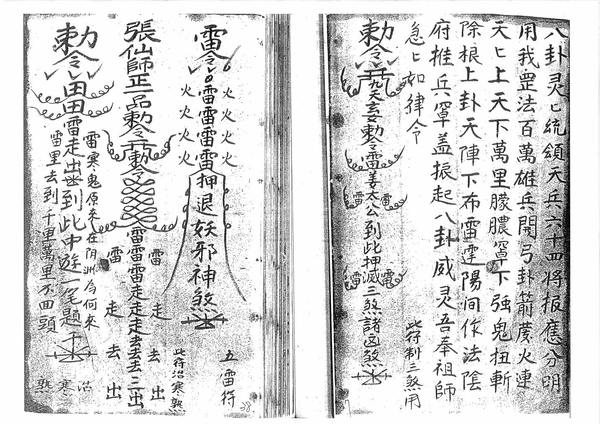 八卦灵〻統領天兵六十四將扳應分明
用我罡法百萬雄兵開弓卦箭火連
天〻上天下萬里朦朧罩下強鬼扭斬
除根上卦天陣下布雷霆陽间作法陰
府推兵罩盖振起八卦威灵吾奉祖師
急〻如律令
勅令九天玄女勅令雷姜太公到此押滅三煞諸凶煞
此符制三煞用
37
五雷符
雷令雷雷雷雷雷押退妖邪神煞
火火火火
火火火火
此符治寒熟
38
張仙師正一品勅令勅令雷雷雷走走走去去出出
雷走去出
雷走去出
勅令雷走出到此中遊一笔題
雷寒鬼原來在阴洲為何來
雷里去到十里萬里不回頭
治寒熟